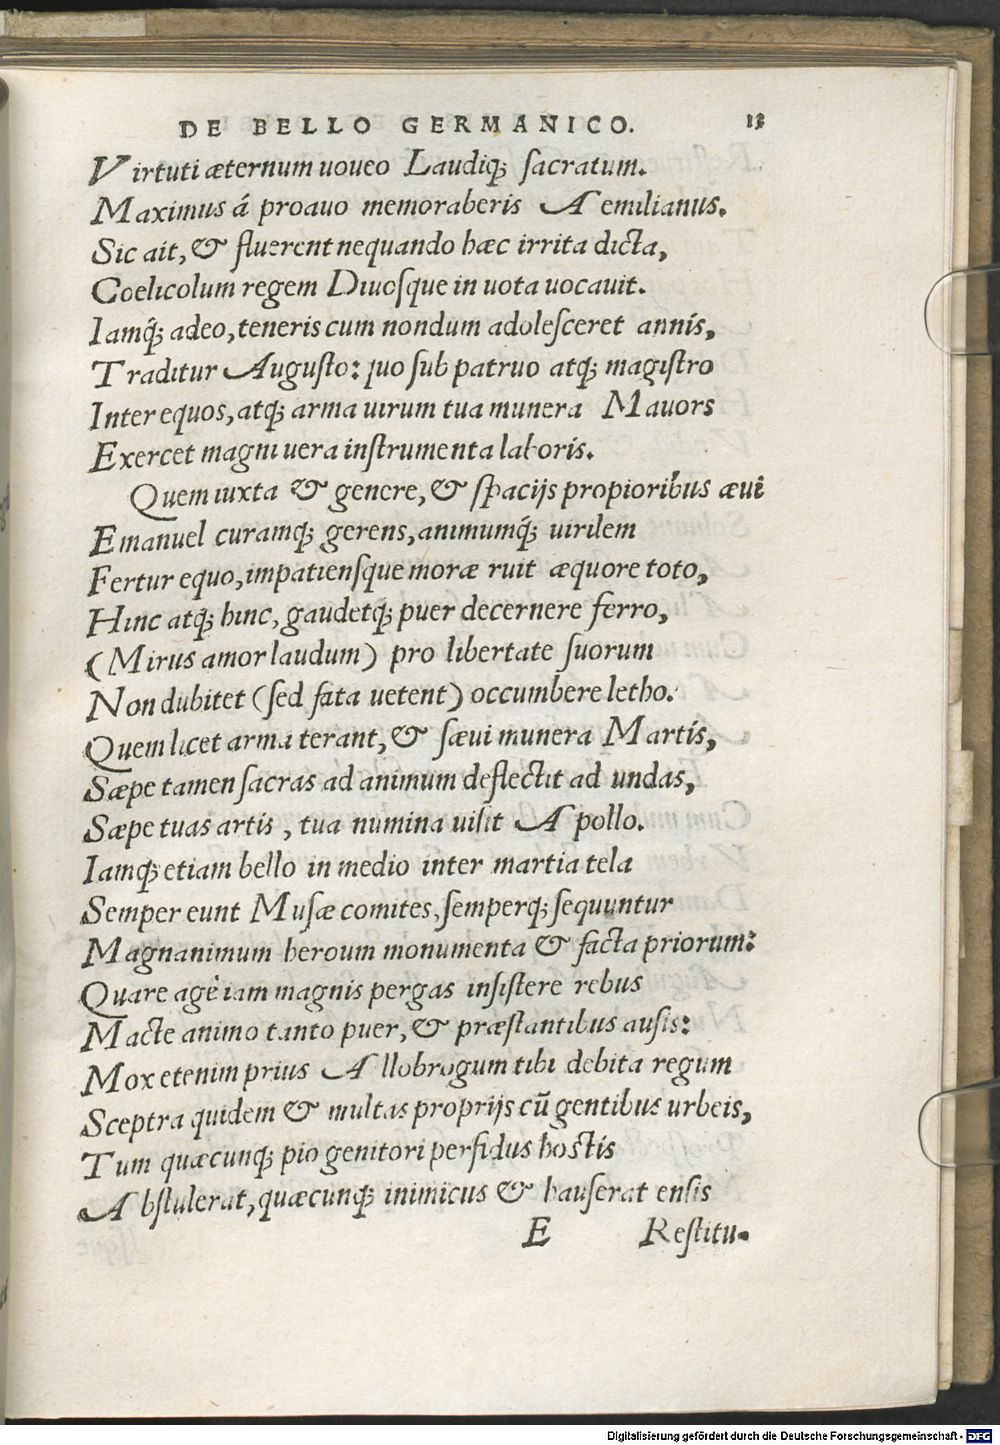 DE BELLO GERMANICO. 13
Virtuti æternum uoueo Laudiq; sacratum.
Maximus á proauo memoraberis Aemilianus.
Sic ait, & fluerent nequando hæc irrita dicta,
Coelicolum regem Diuosque in uota uocauit.
Iamq́; adeo, teneris cum nondum adolesceret annis,
Traditur Augusto: quo sub patruo atq; magistro
Inter equos, atq; arma uirum tua munera Mauors
Exercet magni uera instrumenta laboris.
Quem iuxta & genere, & spacijs propioribus æui
Emanuel curamq; gerens, animumq́; uirilem
Fertur equo, impatiensque moræ ruit æquore toto,
Hinc atq; hinc, gaudetq; puer decernere ferro,
(Mirus amor laudum) pro libertate suorum
Non dubitet (sed fata uetent) occumbere letho.
Quem licet arma terant, & sæui munera Martis,
Sæpe tamen sacras ad animum deflectit ad undas,
Sæpe tuas artis, tua numina uisit Apollo.
Iamq; etiam bello in medio inter martia tela
Semper eunt Musæ comites, semperq; sequuntur
Magnanimum heroum monumenta & facta priorum:
Quare agè iam magnis pergas insistere rebus
Macte animo tanto puer, & præstantibus ausis:
Mox etenim prius Allobrogum tibi debita regum
Sceptra quidem & multas proprijs cū gentibus urbeis,
Tum quæcunq; pio genitori perfidus hostis
Abstulerat, quæcunq; inimicus & hauserat ensis
E Restitu-
Digitalisierung gefördert durch die Deutsche Forschungsgemeinschaft - DFG